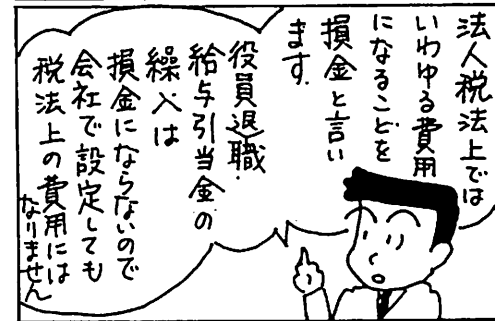 法人税法上では
いわゆる費用
になることを
損金と言い
ます。
役員退職
給与引当金の
繰入は
損金にならないので
会社で設定しても
税法上の費用には
なりません